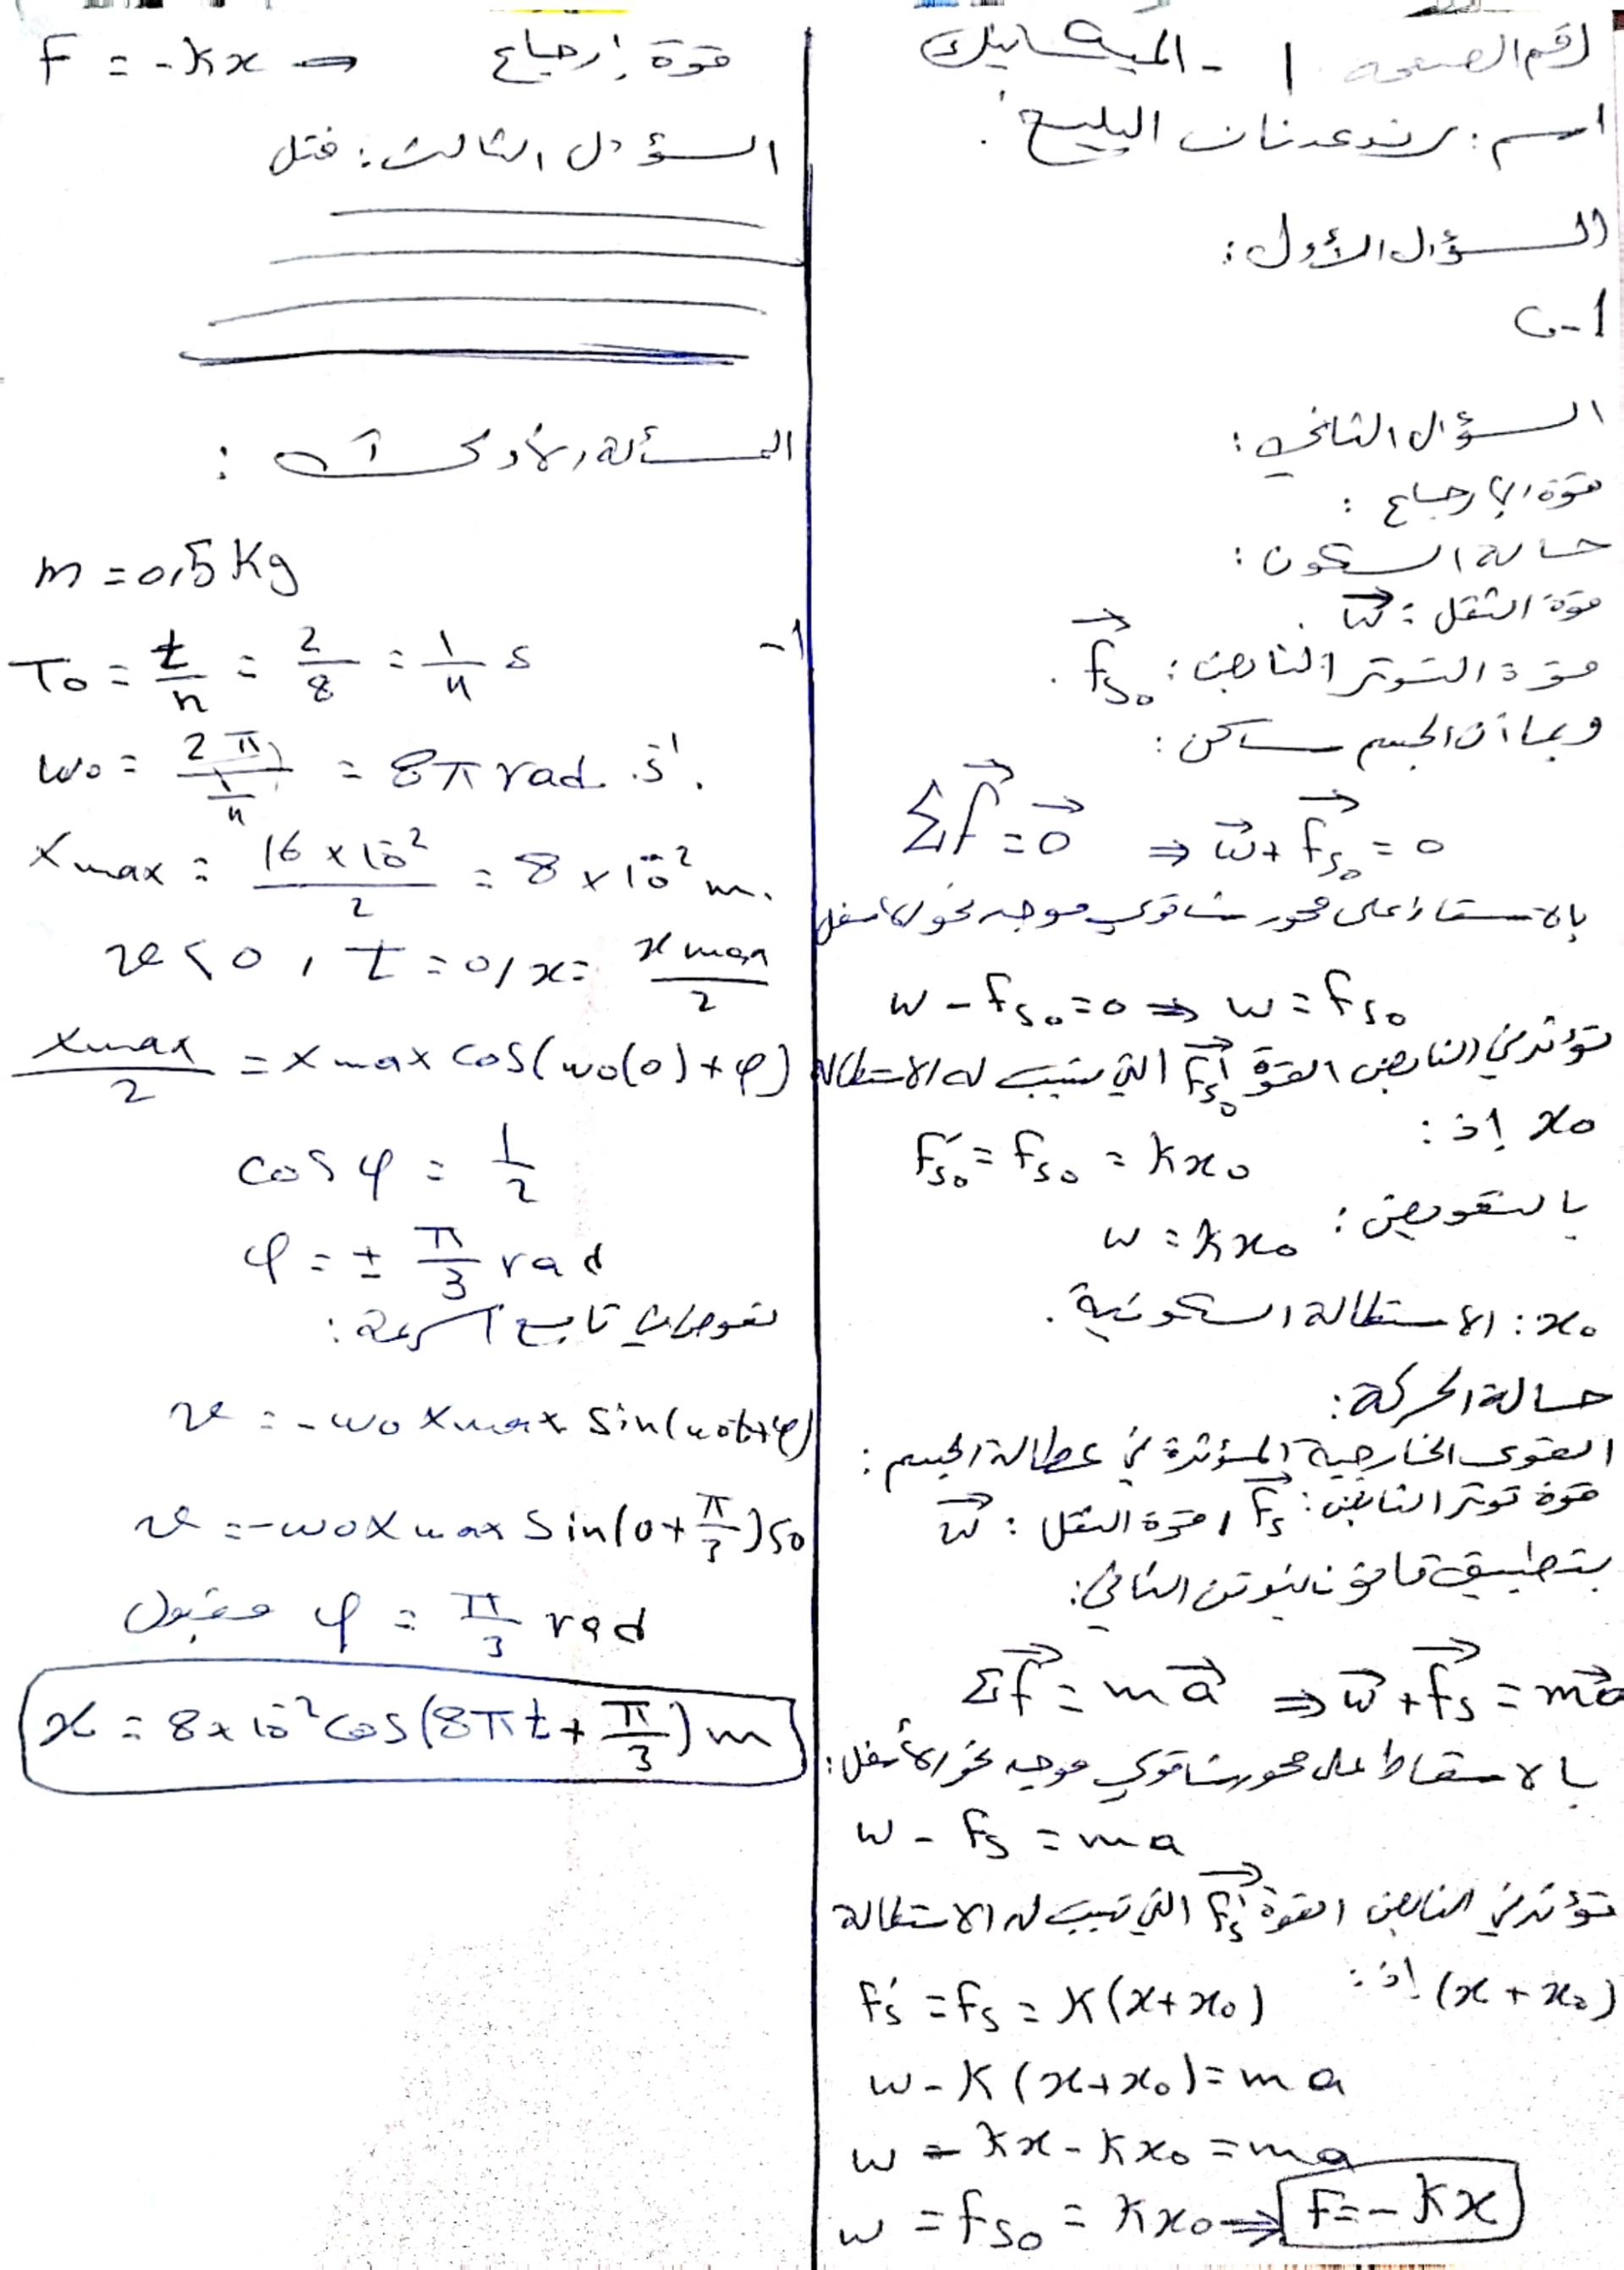 رقم الصفحة 1 - الميكانيك
اسم: رند عدنان البليخ.
السؤال الأول:
1-c
السؤال الثاني:
قوة الإرجاع:
حالة السكون:
قوة الثقل: w⃗.
قوة التوتر النابض: fs₀⃗.
وبما أن الجسم ساكن:
Σf⃗ = 0⃗ ⇒ w⃗ + fs₀⃗ = 0
بالاسقاط على محور شاقولي موجه نحو الأسفل
w - fs₀ = 0 ⇒ w = fs₀
تؤثر في النابض القوة fs₀'⃗ التي تسبب له الاستطالة
x₀ إذ:
fs₀' = fs₀ = kx₀
بالتعويض: w = kx₀
x₀: الاستطالة السكونية.
حالة الحركة:
القوى الخارجية المؤثرة في عطالة الجسم:
قوة توتر النابض: fs⃗، قوة الثقل: w⃗
بتطبيق قانون نيوتن الثاني:
Σf⃗ = ma⃗ ⇒ w⃗ + fs⃗ = ma⃗
بالاسقاط على محور شاقولي موجه نحو الأسفل:
w - fs = ma
تؤثر في النابض القوة fs'⃗ التي تسبب له الاستطالة
(x + x₀) إذ:
fs' = fs = k(x + x₀)
w - k(x + x₀) = ma
w - kx - kx₀ = ma
w = fs₀ = kx₀ ⇒ F = - kx
F = - kx ⇒ قوة إرجاع
السؤال الثالث: فتل
المسألة الأولى:
m = 0,5 kg
1- T₀ = t/n = 2/8 = 1/4 s
w₀ = 2π / (1/4) = 8π rad.s⁻¹.
xmax = 16 × 10⁻² / 2 = 8 × 10⁻² m.
v < 0, t = 0, x = xmax/2
xmax/2 = xmax cos(w₀(0) + φ)
cos φ = 1/2
φ = ± π/3 rad
نعوض في تابع السرعة:
v = - w₀ xmax sin(w₀t + φ)
v = - w₀ xmax sin(0 + π/3) < 0
φ = π/3 rad مقبول
x = 8 × 10⁻² cos(8πt + π/3) m